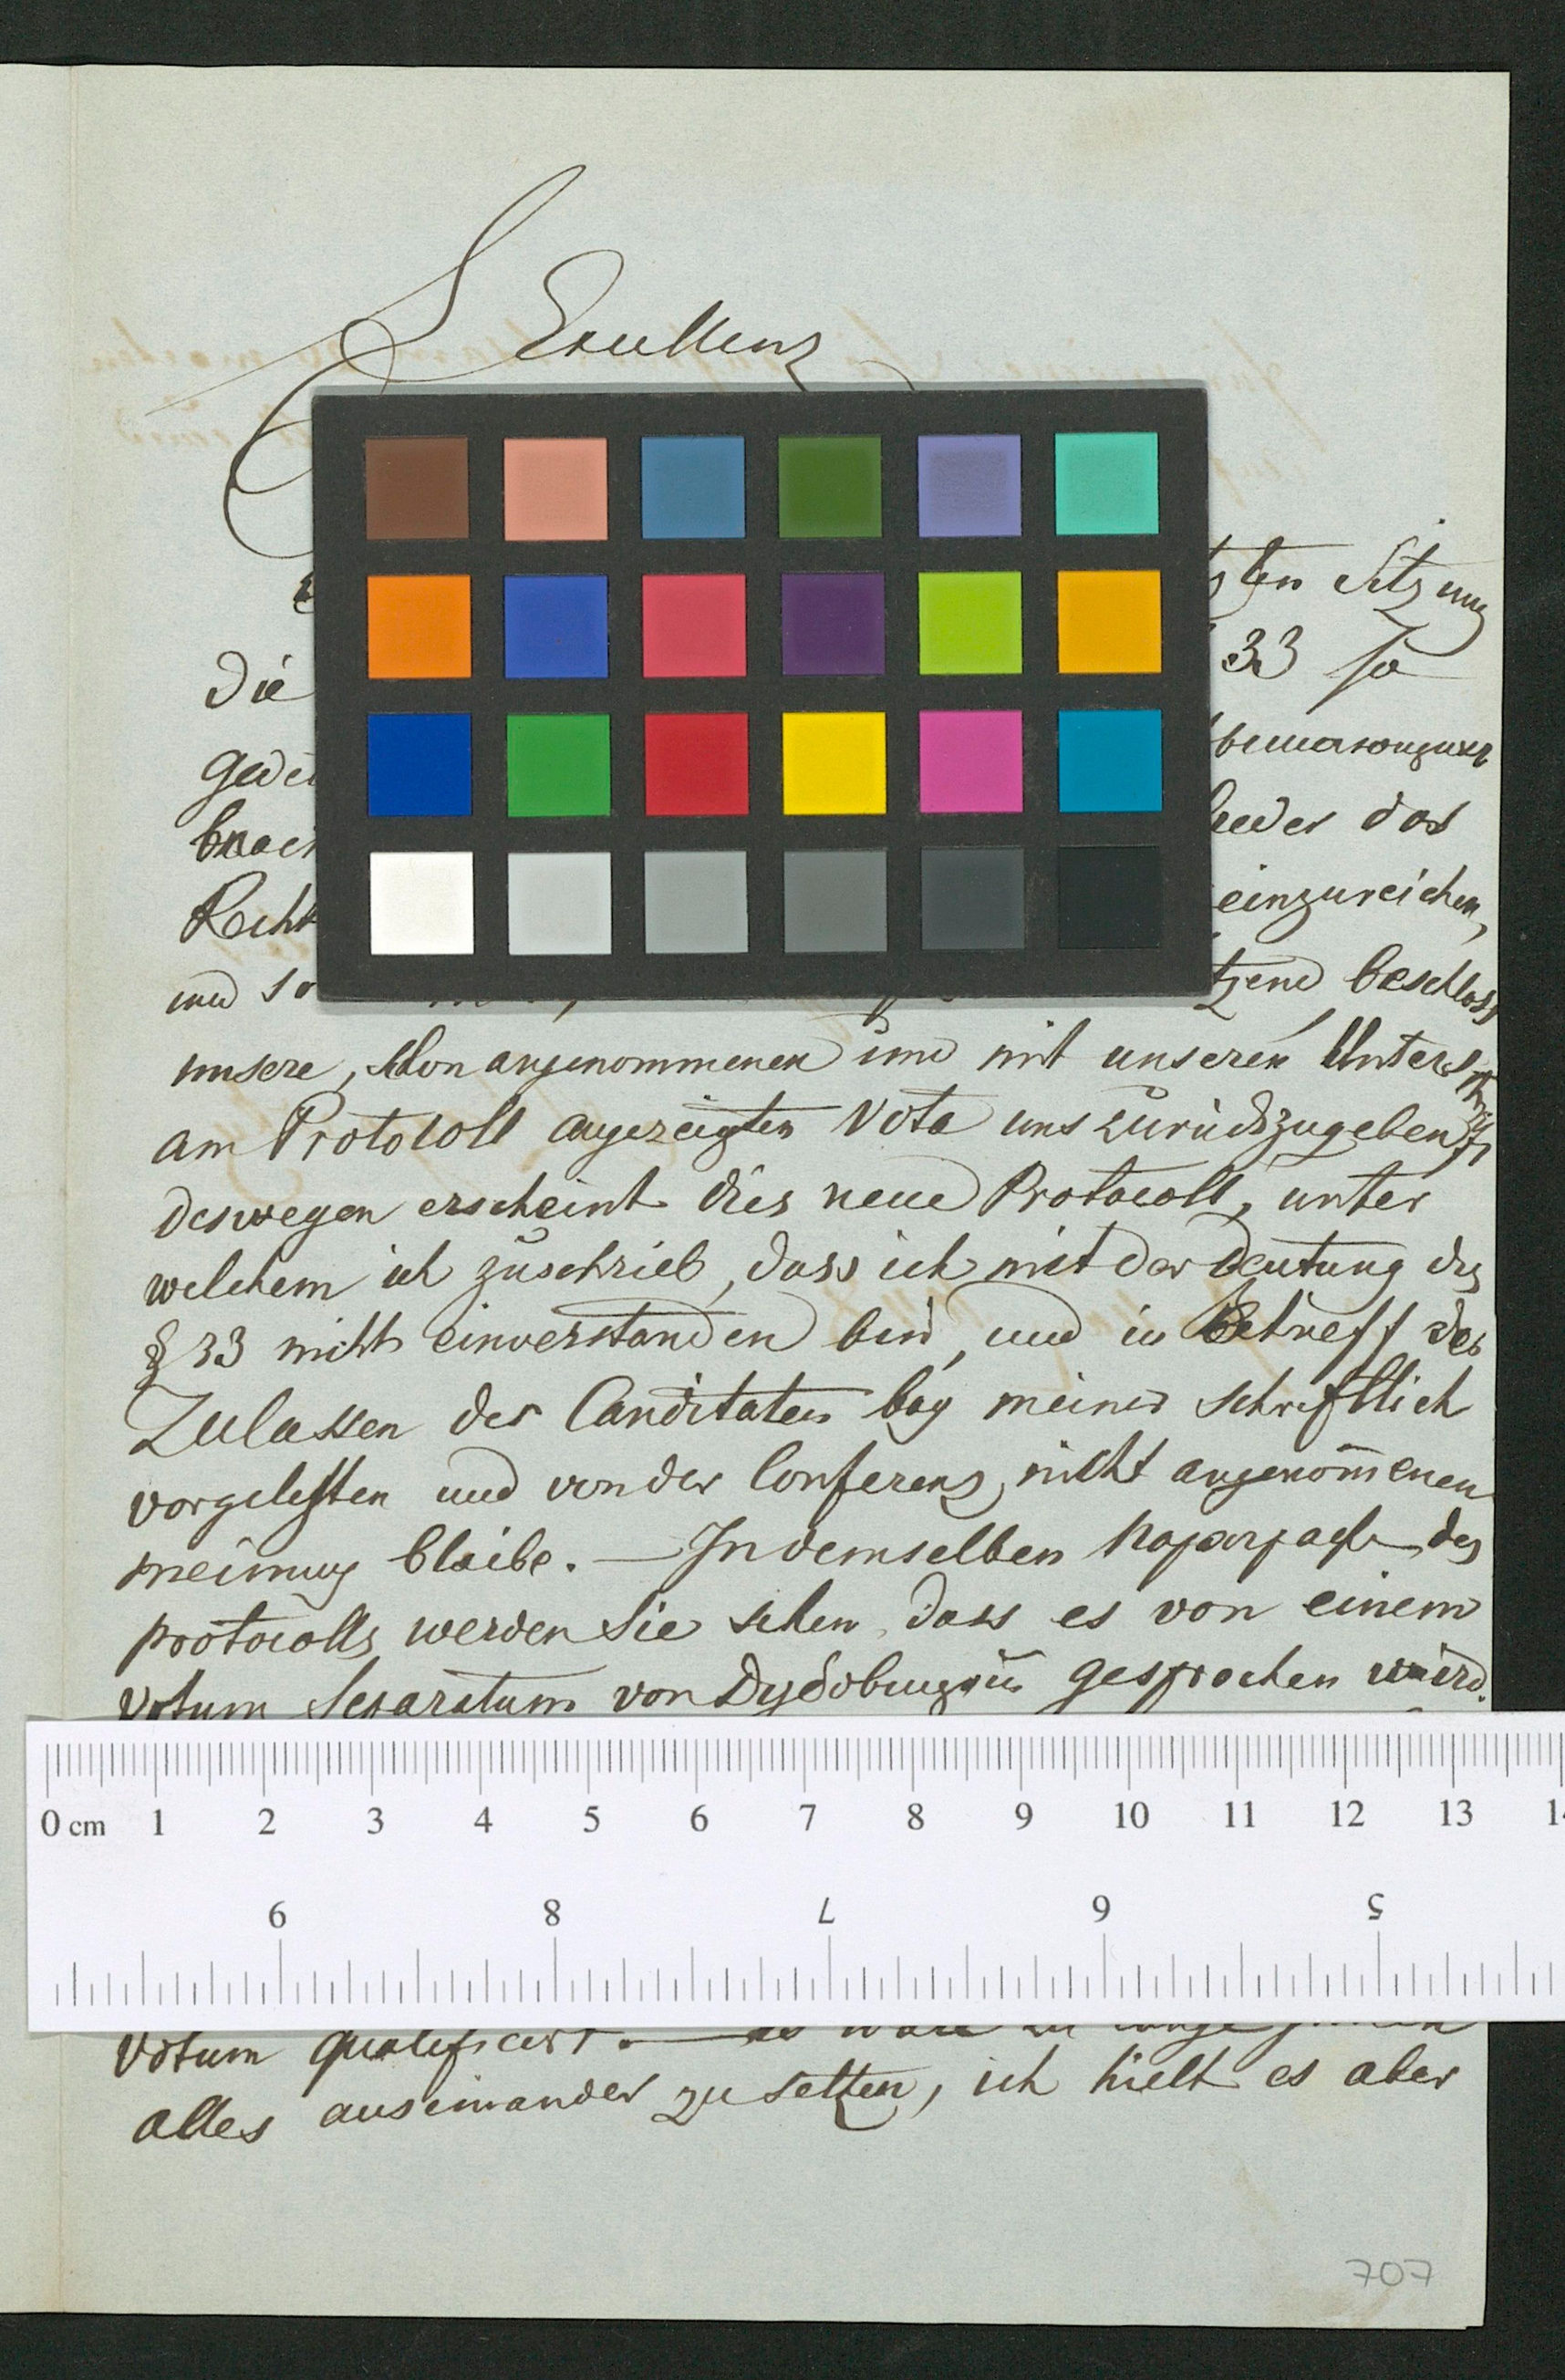 Excellenz
tzten Sitzung
die 33 so
das
Recht einzureichen,
und so beschloss
unsere, schon angenommenen und mit unseren Unterschr
am Protocoll angezeigten Vota uns zurückzugeben
deswegen erscheint dies neue Protocoll, unter
welchem ich zuschrieb, dass ich mit der Deutung des
§ 33 nicht einverstanden bin, und in Betreff des
Zulassen der Canditaten bey meiner schriftlich
vorgelesten und von der Conferenz nicht angenom̄enen
meinung bleibe. — In demselben des
protocolls werden Sie sehen, dass es von einem
votum Separatum von gesprochen wird.
0 cm 1 2 3 4 5 6 7 8 9 10 11 12 13
9 8 7 6 5
votum qualificirt. — es wäre zu lange
alles auseinander zu setzen, ich hielt es aber
707